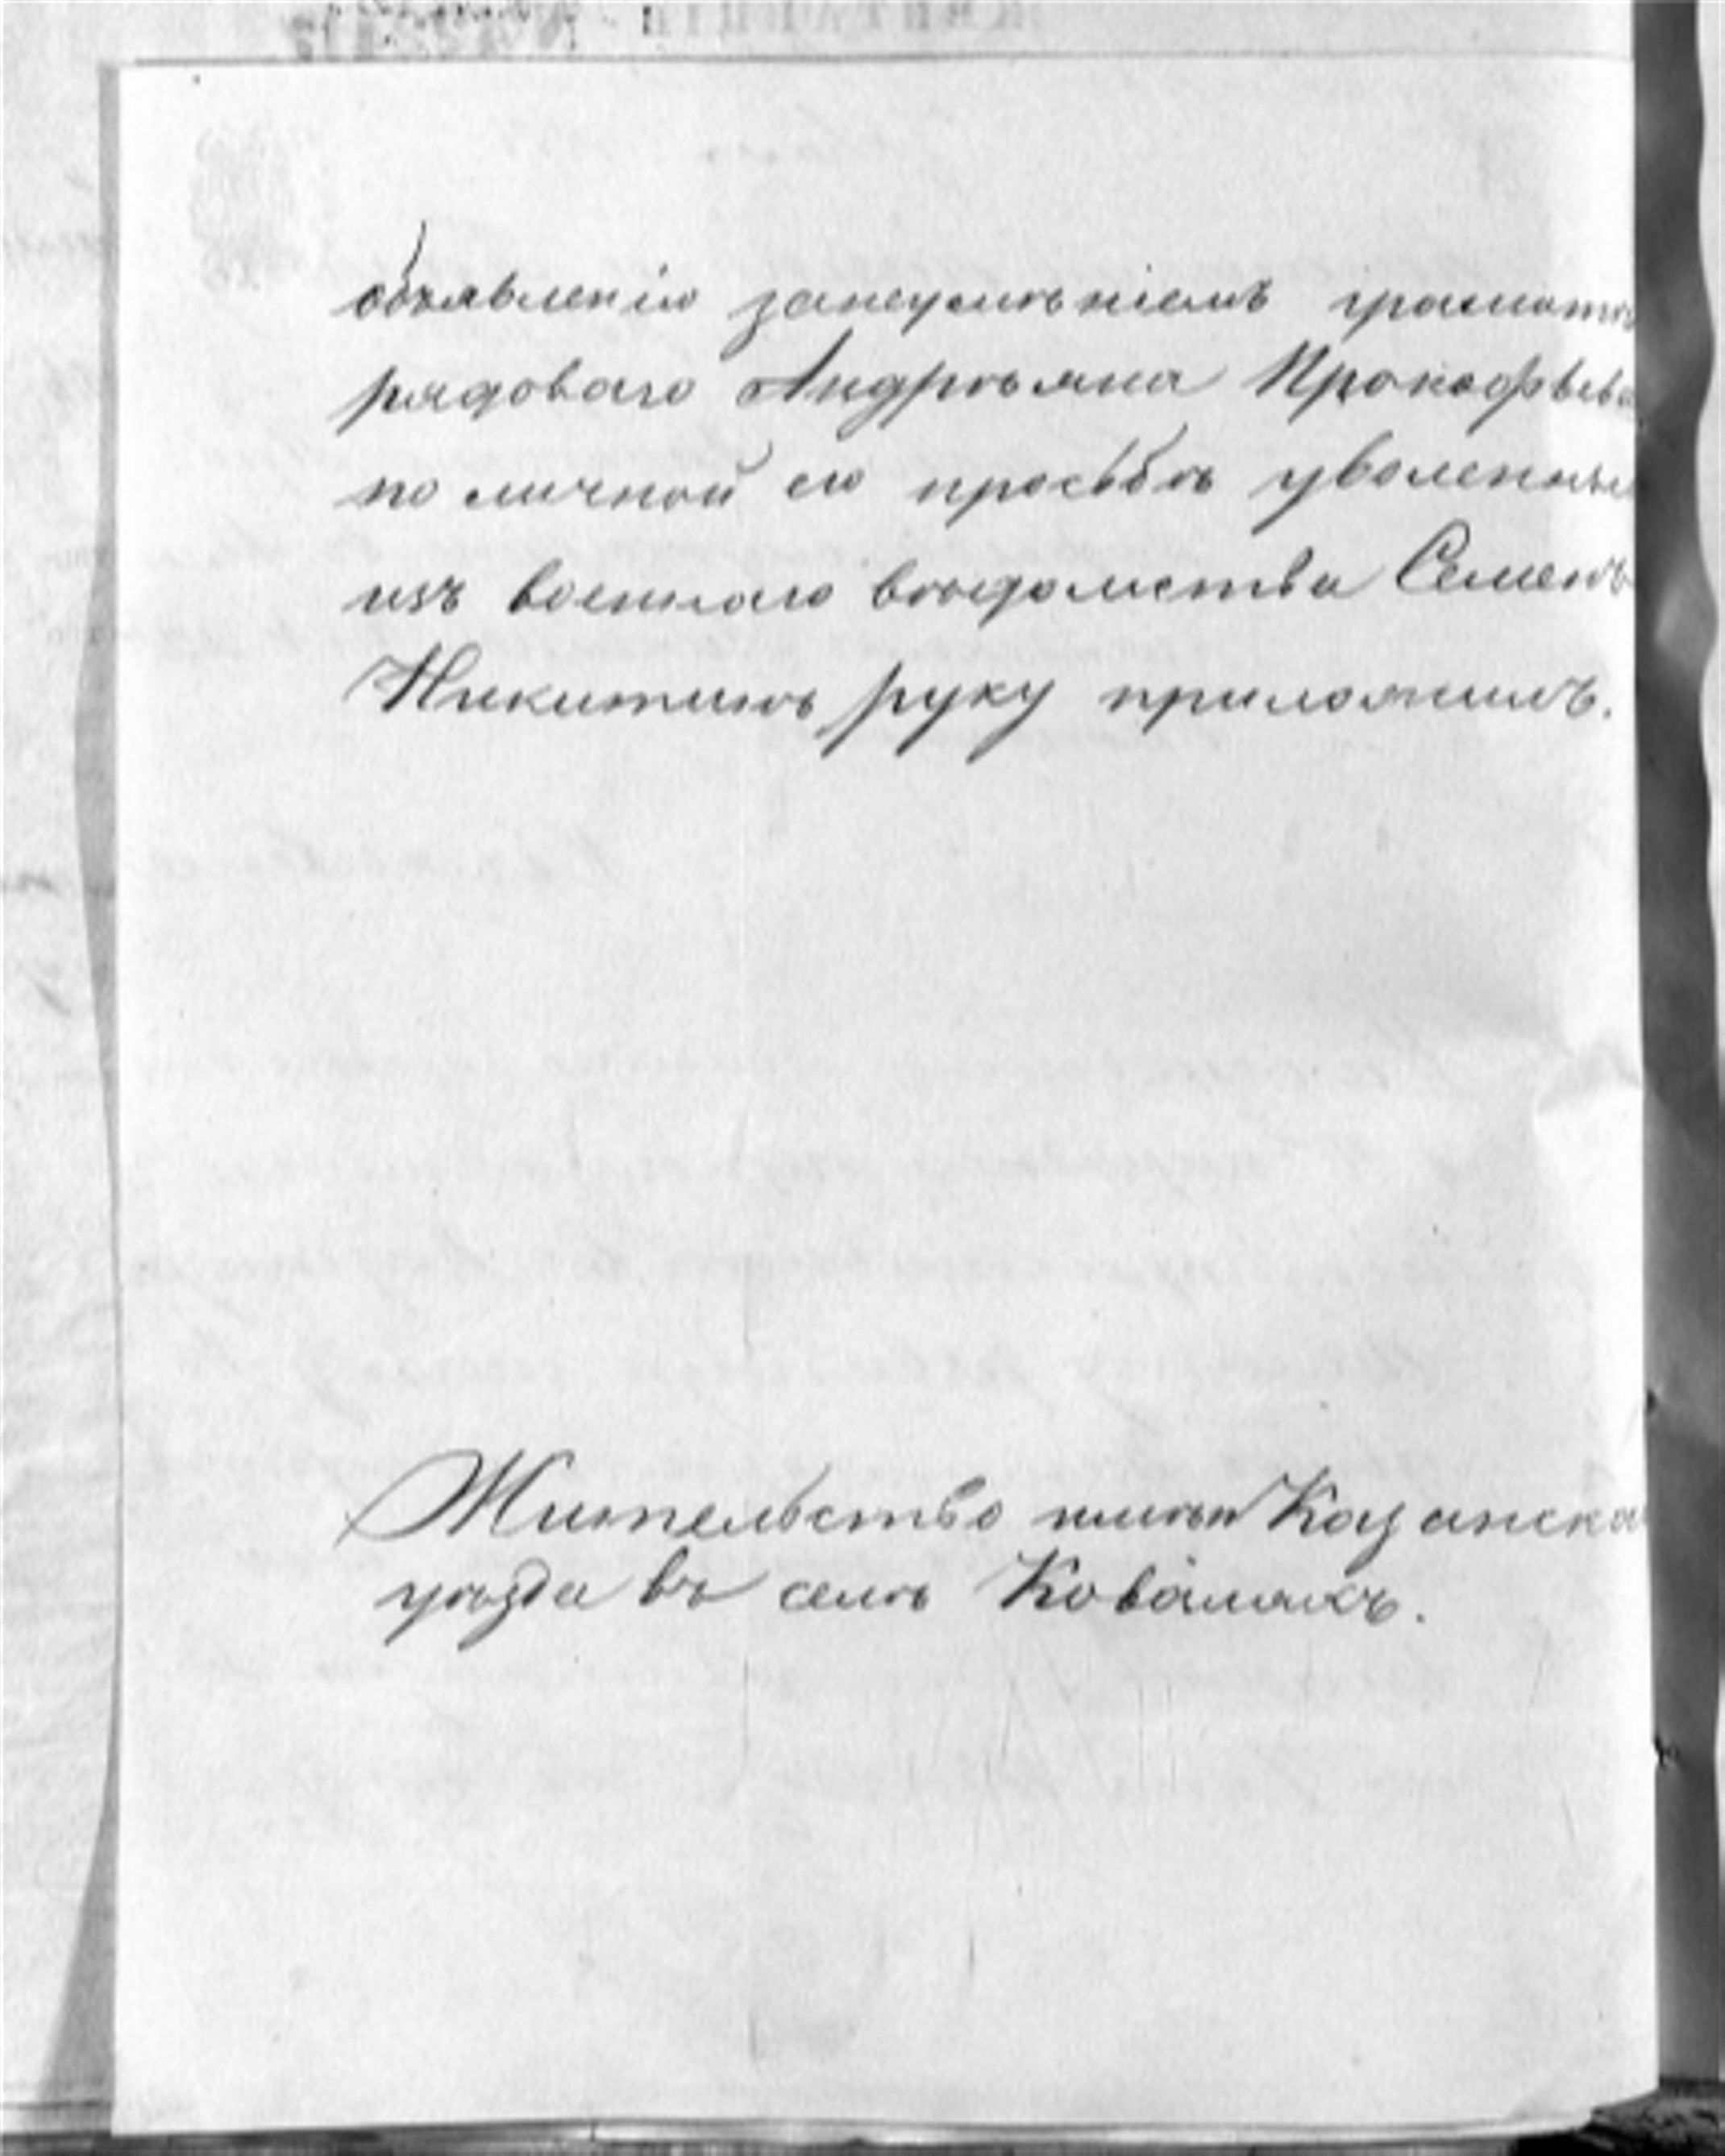 объявленію занеумѣніемъ грамотѣ
рядоваго Андрѣяна Прокофьева
по личной его прозьбѣ уволенный
изъ военнаго вѣдомства Семенъ
Никитинъ руку приложилъ.
Жительство имѣю Казанска
уѣзда въ селѣ Ковалахъ.